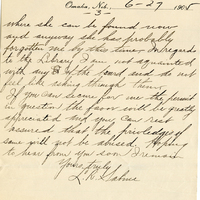 Omaha, Neb. 6-27 1905
-3-
where she can be found now
and anyway she has probably
forgotten me by this time. In regards
to the Library I am not aquainted
with any of the board and do not
feel like asking though them.
If you can secure for me the permit
in question the favor will be greatly
appreciated and you can rest
assured that the priviledges of
same will not be abused. Hoping
to hear from you soon I remain
Yours truly
L.